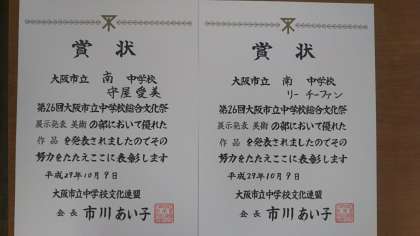 賞状
大阪市立 南 中学校
守屋愛美
第26回大阪市立中学校総合文化祭
展示発表 美術 の部において優れた
作品 を発表されましたのでその
努力をたたえここに表彰します
平成29年10月9日
大阪市立中学校文化連盟
会長 市川あい子
賞状
大阪市立 南 中学校
リー チーファン
第26回大阪市立中学校総合文化祭
展示発表 美術 の部において優れた
作品 を発表されましたのでその
努力をたたえここに表彰します
平成29年10月9日
大阪市立中学校文化連盟
会長 市川あい子